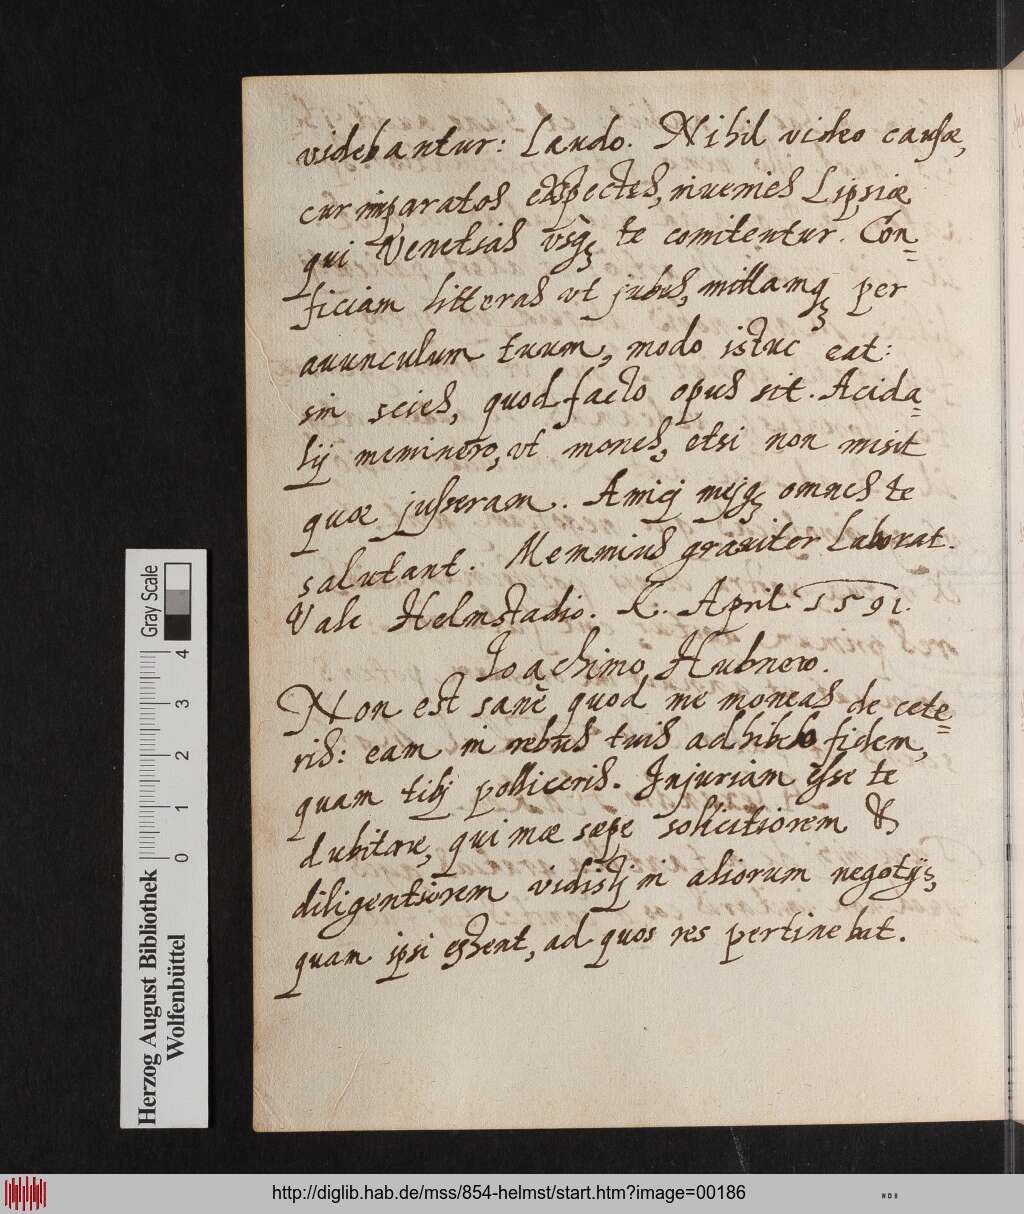 videbantur: Laudo. Nihil video causæ,
cur imparatos exspectes, invenies Lipsiæ
qui Venetias usq₃ te comitentur. Con=
ficiam litteras vt jubes, mittamq₃ per
avunculum tuum, modo istuc eat:
sin scies, quod facto opus sit. Acida=
lij meminero, vt mones, etsi non misit
quæ jusseram. Amicj mejq₃ omnes te
salutant. Memmius graviter laborat.
Vale Helmstadio. K. April 1591.
Joachimo Hubnero.
Non est sanè quod me moneas de cete=
ris: eam in rebus tuis adhibebo fidem,
quam tibj polliceris. Injuriam esse te
dubitare, qui mæ sæpe sollicitiorem &
diligentiorem vidistj in aliorum negotijs,
quam ipsi essent, ad quos res pertinebat.
Herzog August Bibliothek
Wolfenbüttel
Gray Scale
0 1 2 3 4
http://diglib.hab.de/mss/854-helmst/start.htm?image=00186